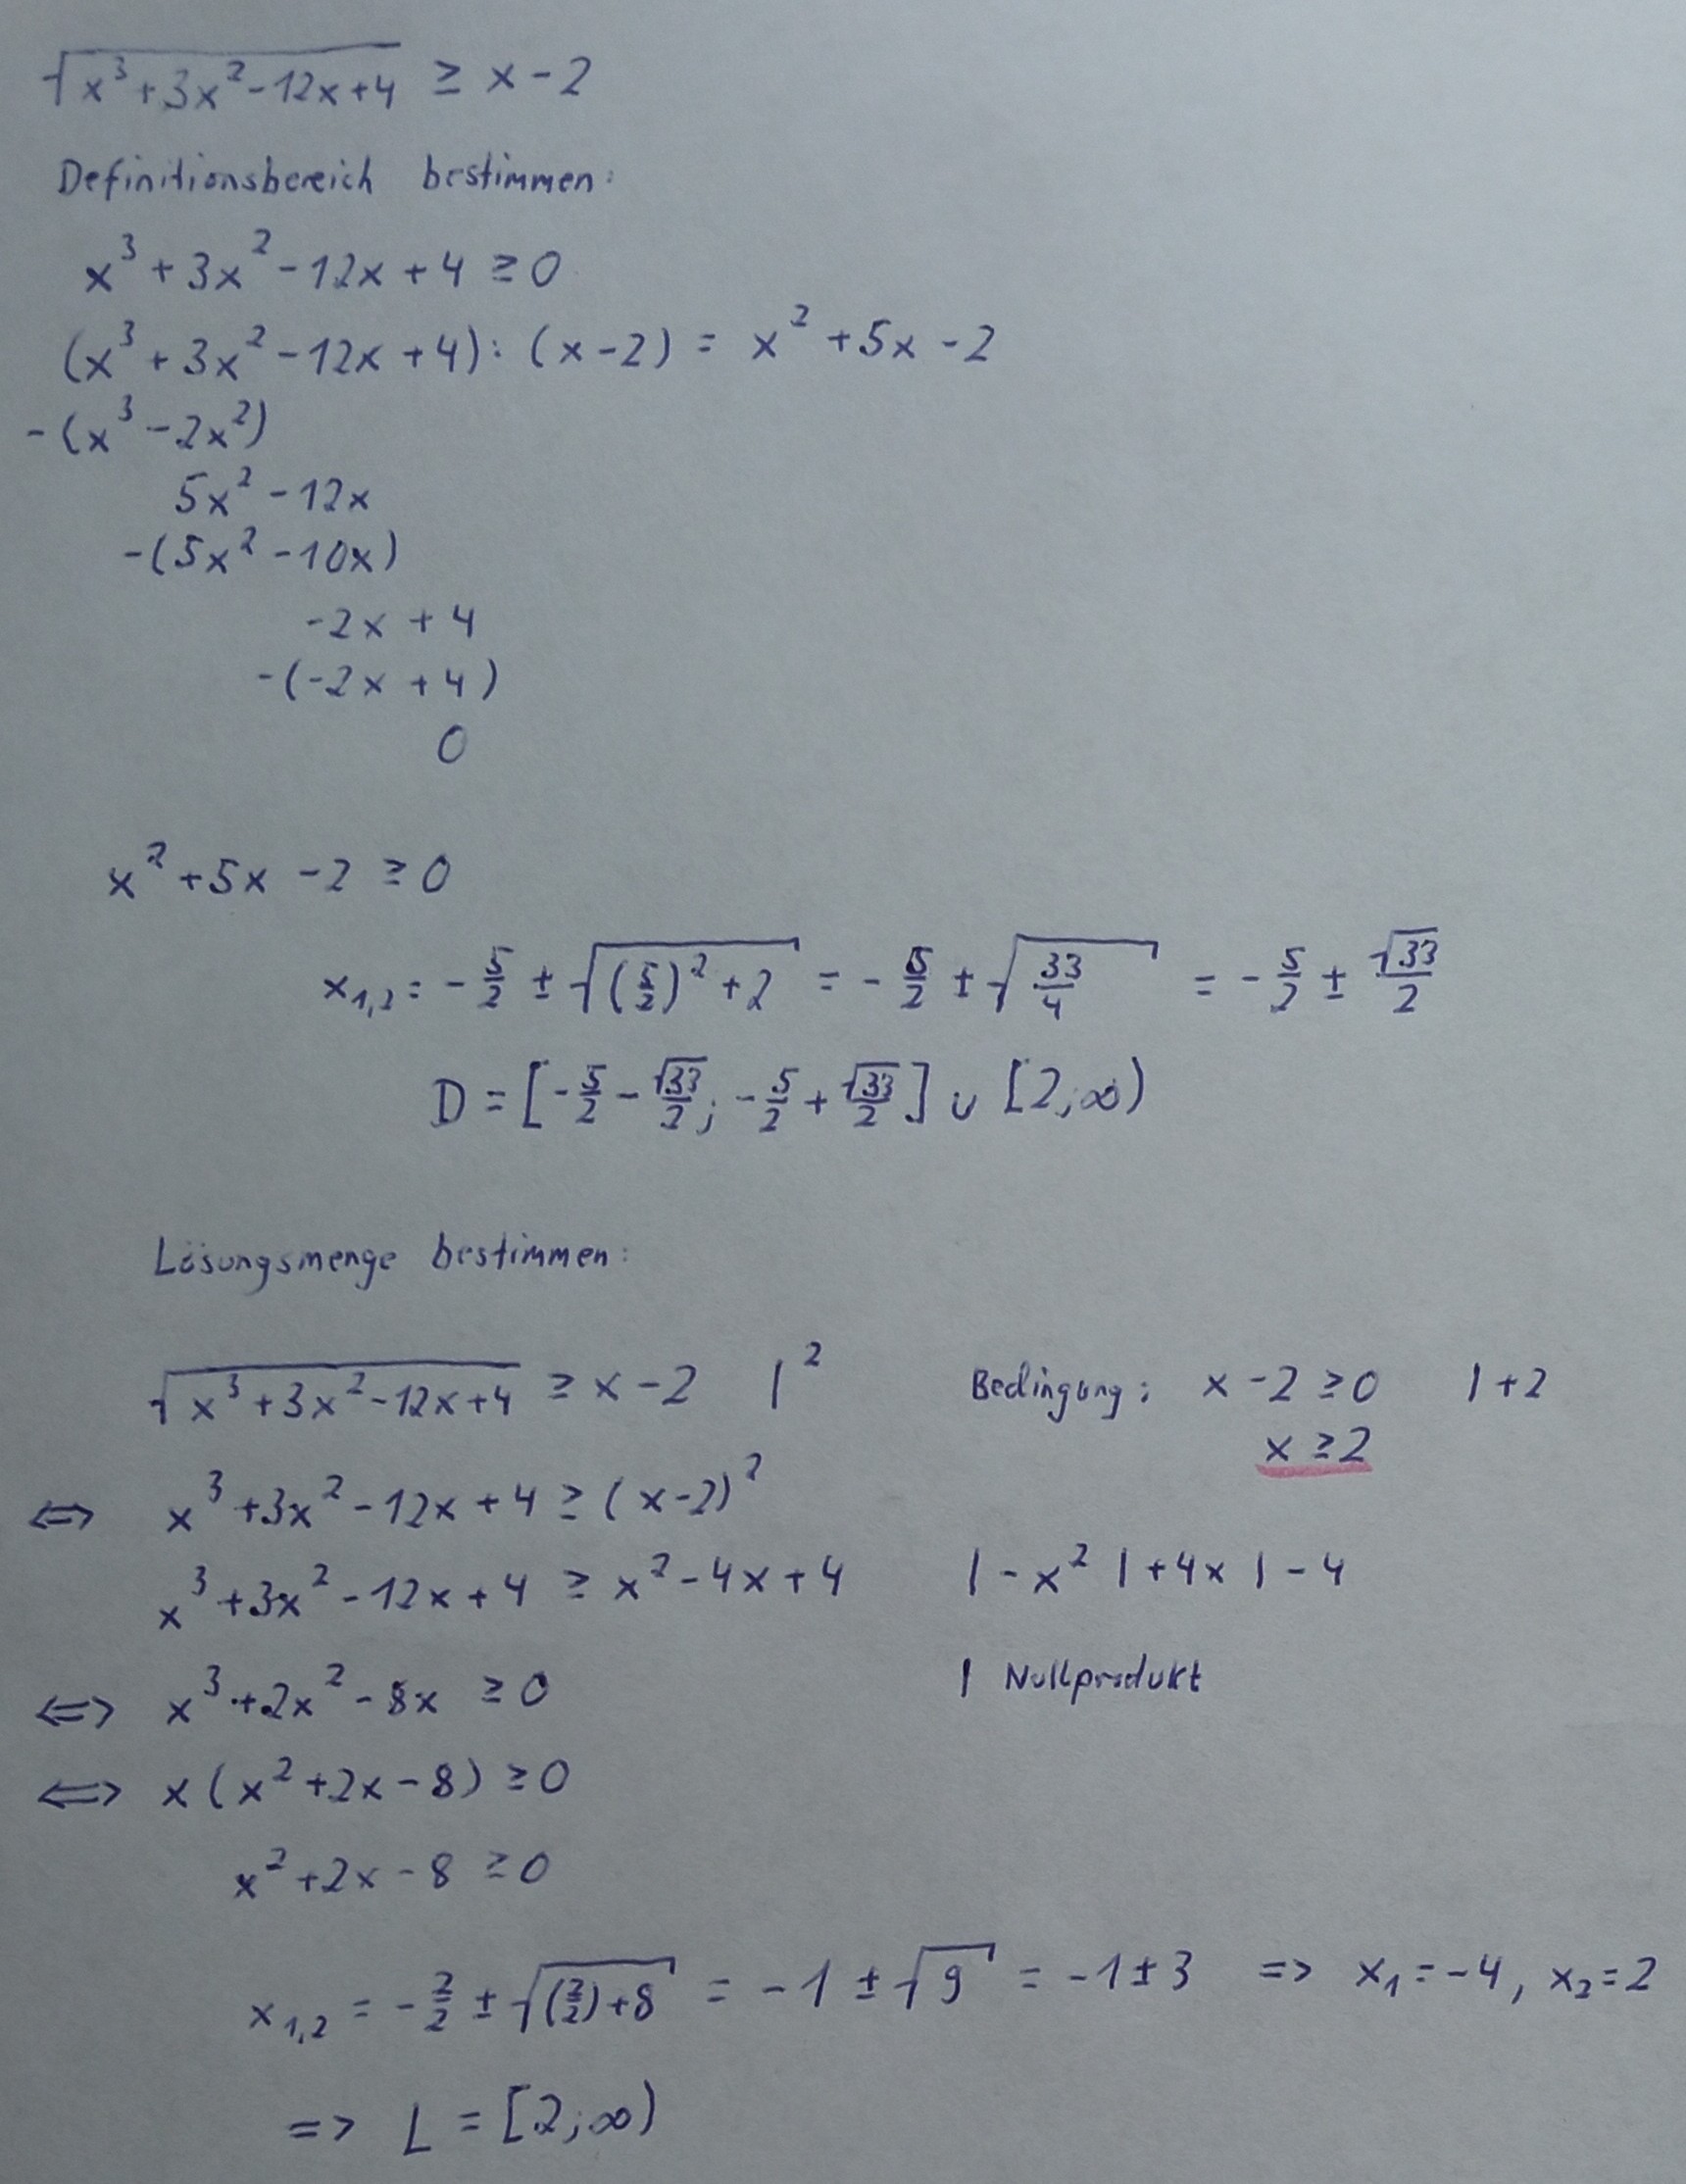 √(x³+3x²-12x+4) ≥ x-2
Definitionsbereich bestimmen:
x³+3x²-12x+4 ≥ 0
(x³+3x²-12x+4):(x-2) = x²+5x-2
-(x³-2x²)
5x²-12x
-(5x²-10x)
-2x+4
-(-2x+4)
0
x²+5x-2 ≥ 0
x₁,₂ = -5/2 ± √((5/2)²+2) = -5/2 ± √(33/4) = -5/2 ± √33/2
D = [-5/2 - √33/2; -5/2 + √33/2] ∪ [2;∞)
Lösungsmenge bestimmen:
√(x³+3x²-12x+4) ≥ x-2 |² Bedingung: x-2 ≥ 0 |+2
x ≥ 2
⇔ x³+3x²-12x+4 ≥ (x-2)²
x³+3x²-12x+4 ≥ x²-4x+4 |-x² |+4x |-4
⇔ x³+2x²-8x ≥ 0 | Nullprodukt
⇔ x(x²+2x-8) ≥ 0
x²+2x-8 ≥ 0
x₁,₂ = -2/2 ± √((2/2)+8) = -1 ± √9 = -1±3 => x₁=-4, x₂=2
=> L = [2;∞)